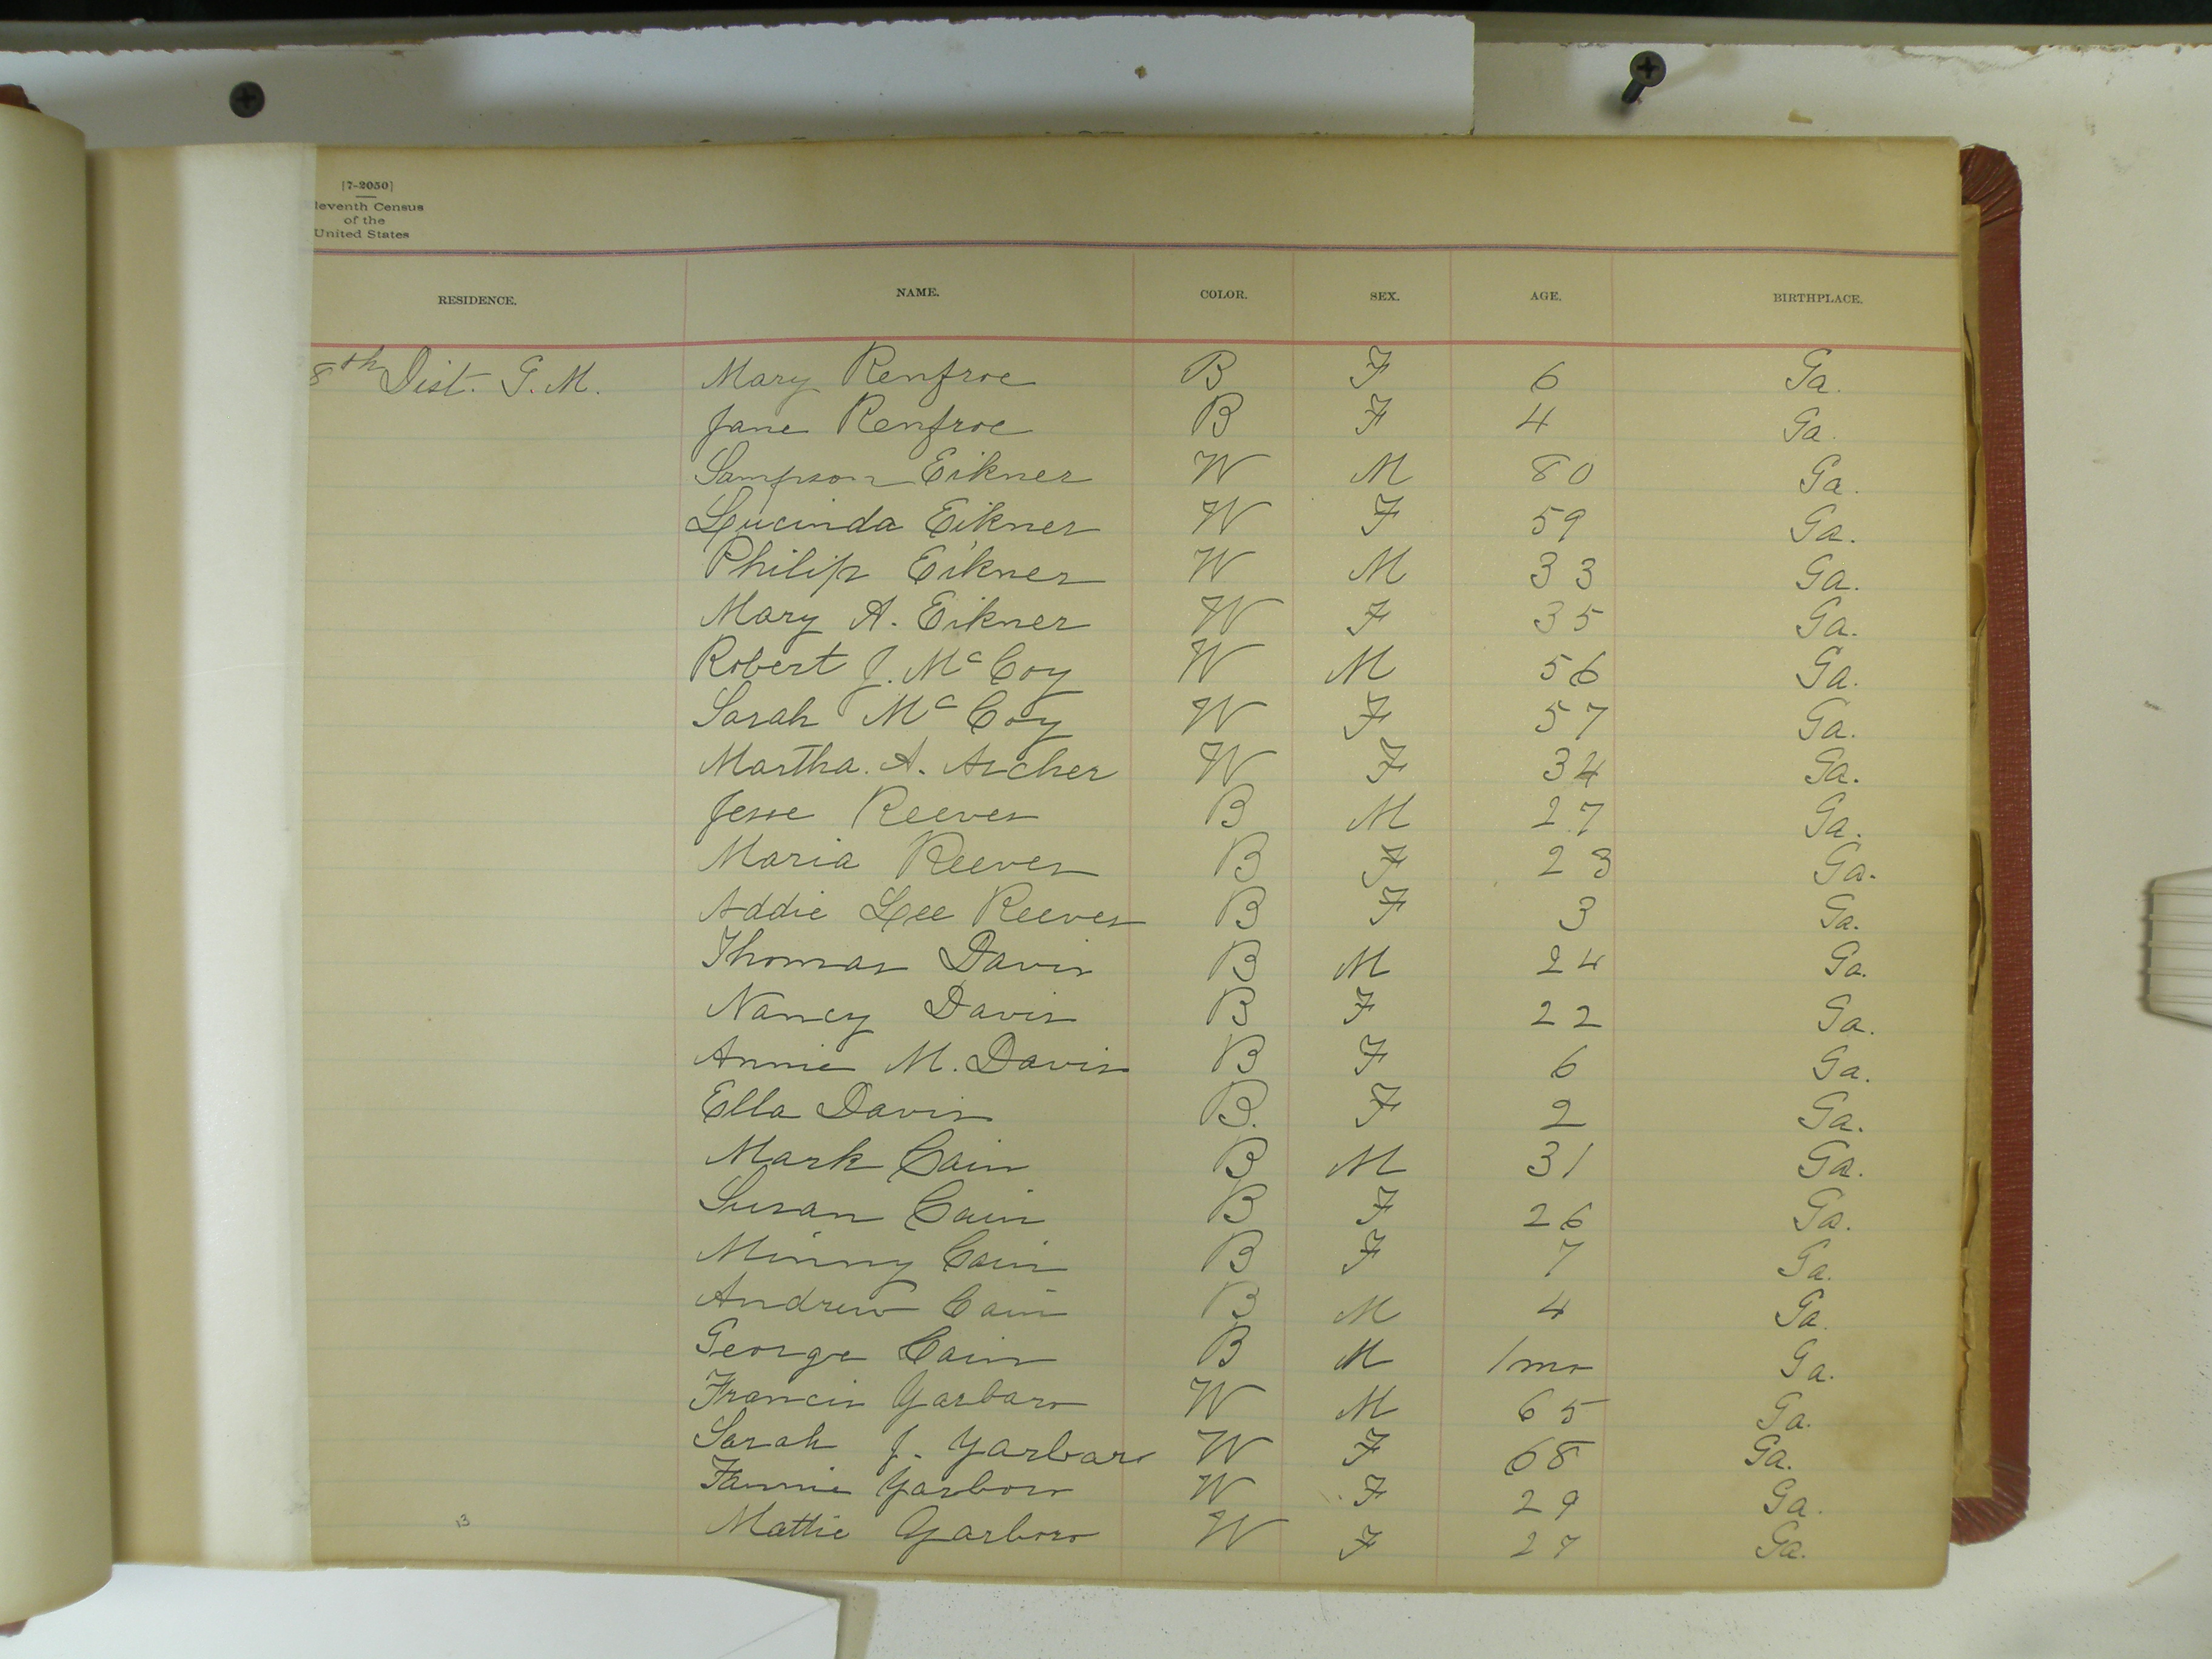 [7-2050]
leventh Census
of the
United States
RESIDENCE. NAME. COLOR. SEX. AGE. BIRTHPLACE.
8th Dist. G. M. Mary Renfroe B F 6 Ga.
Jane Renfroe B F 4 Ga.
Sampson Eikner W M 80 Ga.
Lucinda Eikner W F 59 Ga.
Philip Eikner W M 33 Ga.
Mary A. Eikner W F 35 Ga.
Robert J. McCoy W M 56 Ga.
Sarah McCoy W F 57 Ga.
Martha. A. Archer W F 34 Ga.
Jesse Reeves B M 27 Ga.
Maria Reeves B F 23 Ga.
Addie Lee Reeves B F 3 Ga.
Thomas Davis B M 24 Ga.
Nancy Davis B F 22 Ga.
Annie M. Davis B F 6 Ga.
Ella Davis B. F 2 Ga.
Mark Cain B M 31 Ga.
Susan Cain B F 26 Ga.
Minny Cain B F 7 Ga.
Andrew Cain B M 4 Ga.
George Cain B M 1mo Ga.
Francis Yarbaro W M 65 Ga.
Sarah J. Yarbaro W F 68 Ga.
Fannie Yarboro W F 29 Ga.
Mattie Yarboro W F 27 Ga.